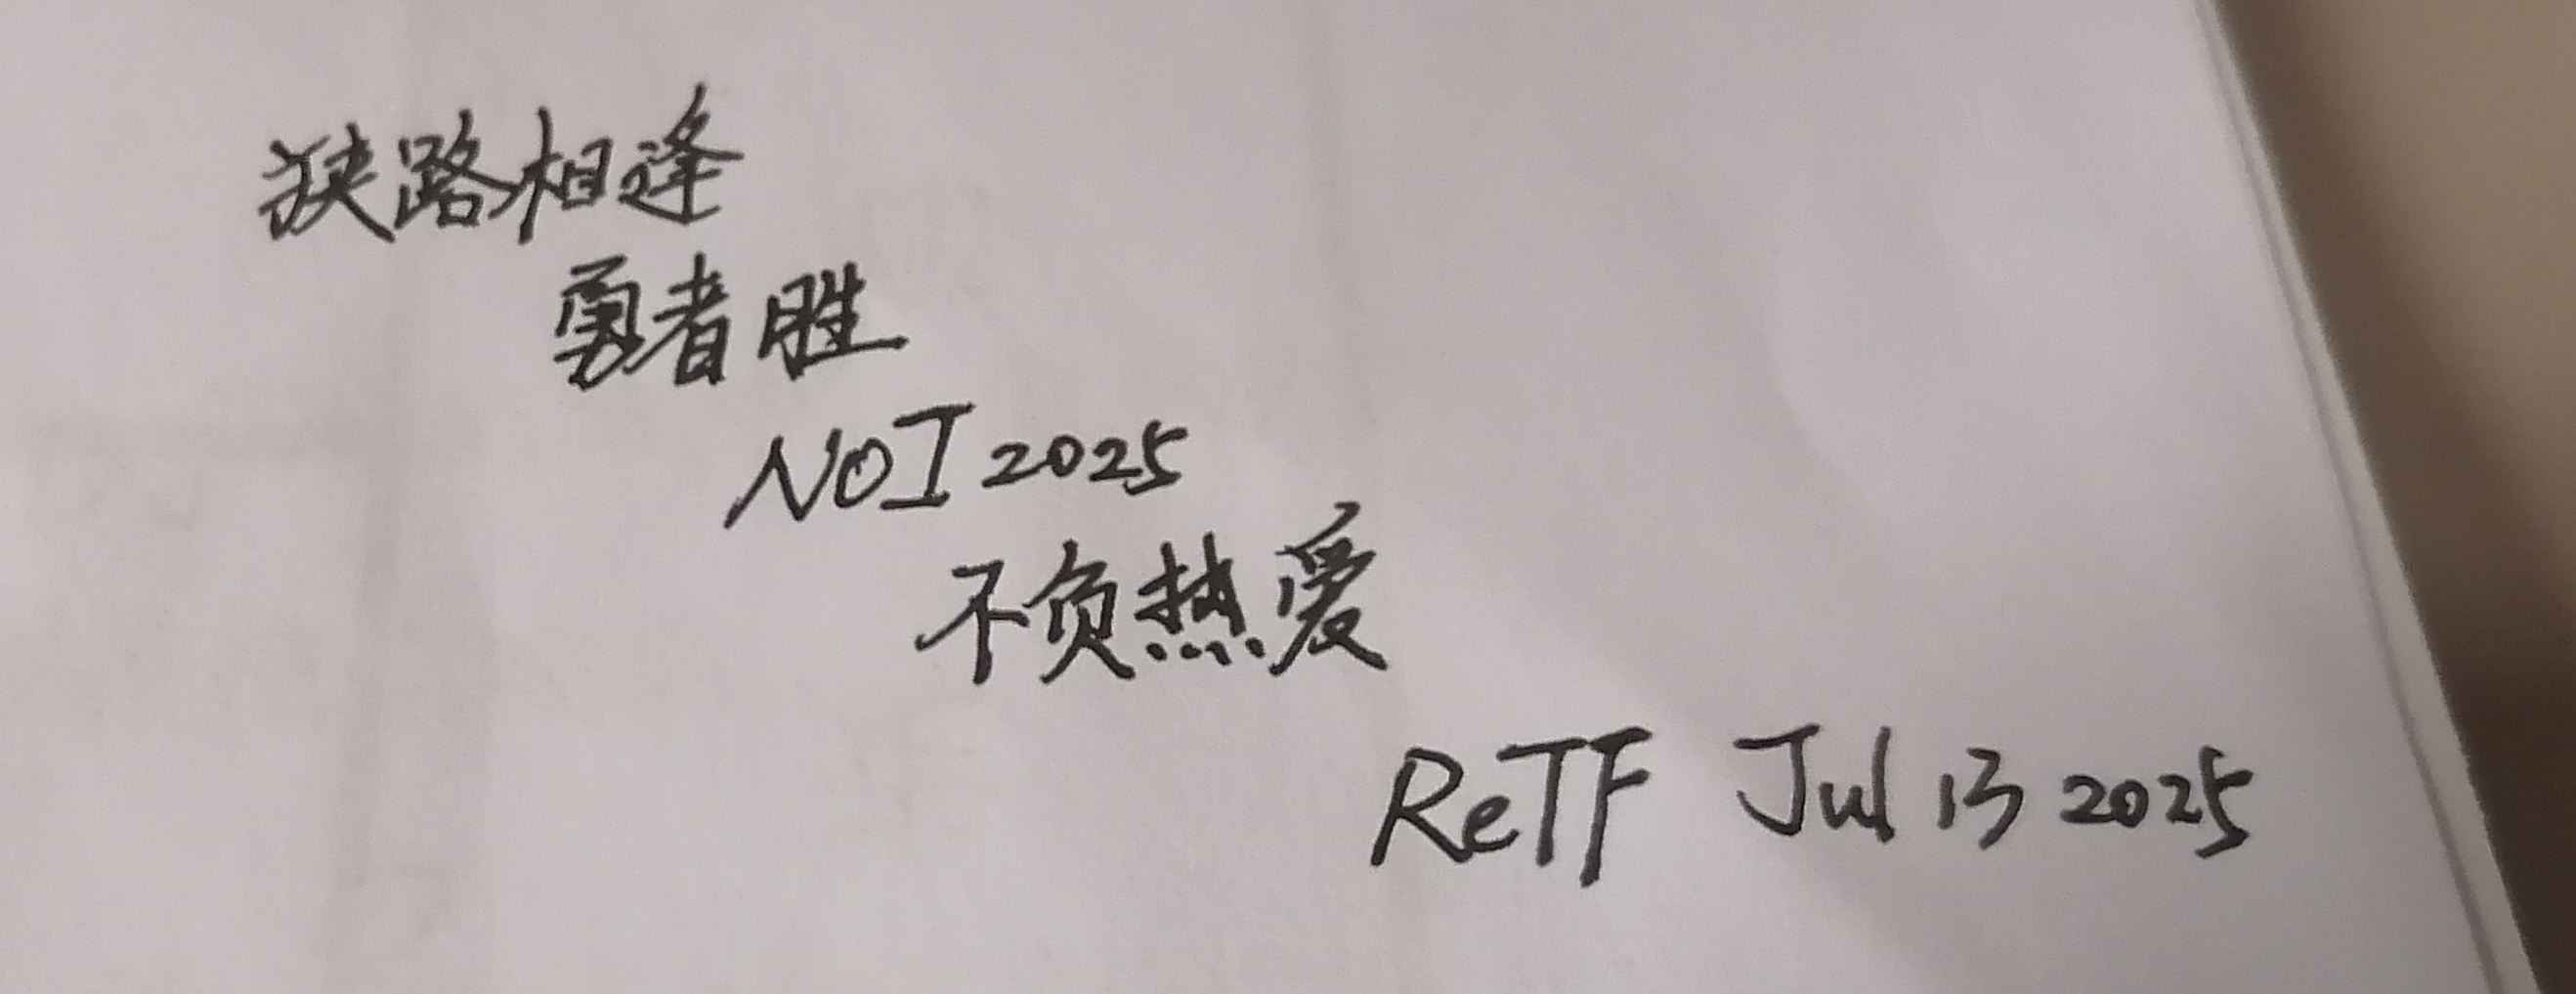 狭路相逢
勇者胜
NOI 2025
不负热爱
ReTF Jul 13 2025